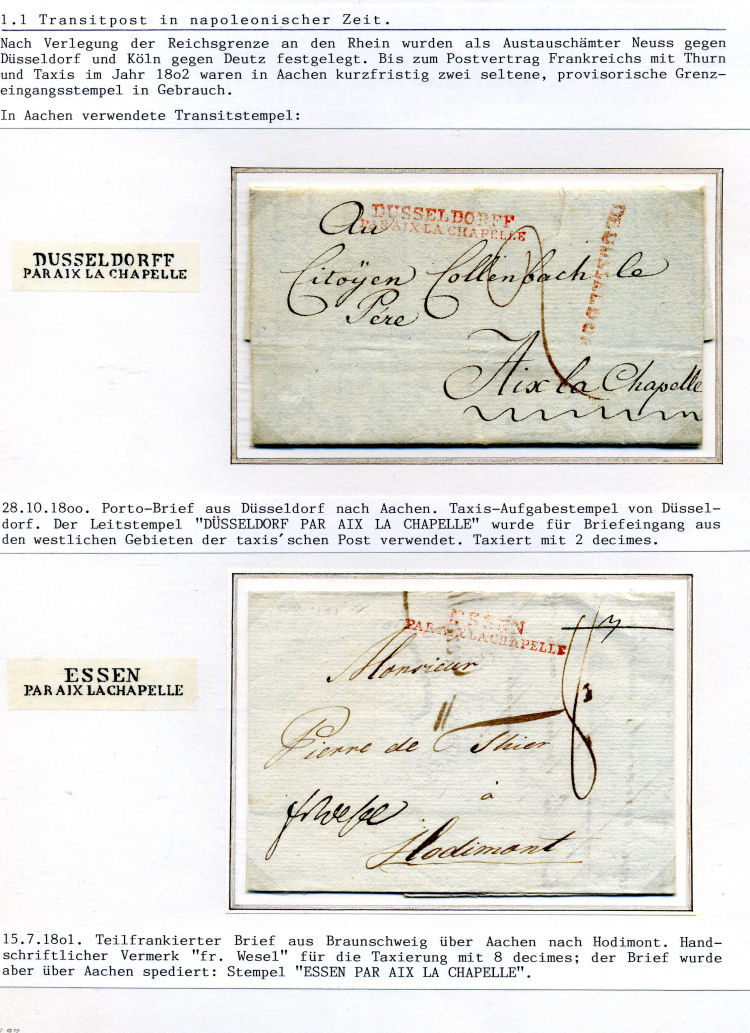 1.1 Transitpost in napoleonischer Zeit.
Nach Verlegung der Reichsgrenze an den Rhein wurden als Austauschämter Neuss gegen
Düsseldorf und Köln gegen Deutz festgelegt. Bis zum Postvertrag Frankreichs mit Thurn
und Taxis im Jahr 18o2 waren in Aachen kurzfristig zwei seltene, provisorische Grenz-
eingangsstempel in Gebrauch.
In Aachen verwendete Transitstempel:
DUSSELDORFF
PAR AIX LA CHAPELLE
DUSSELDORFF
PAR AIX LA CHAPELLE
Au
Citoÿen Collenbach le
Père
Aix la Chapelle
28.10.18oo. Porto-Brief aus Düsseldorf nach Aachen. Taxis-Aufgabestempel von Düssel-
dorf. Der Leitstempel "DÜSSELDORF PAR AIX LA CHAPELLE" wurde für Briefeingang aus
den westlichen Gebieten der taxis´schen Post verwendet. Taxiert mit 2 decimes.
ESSEN
PAR AIX LA CHAPELLE
ESSEN
PAR AIX LA CHAPELLE
Monsieur
Pierre de Thier
à
fr Wesel
Hodimont
15.7.18o1. Teilfrankierter Brief aus Braunschweig über Aachen nach Hodimont. Hand-
schriftlicher Vermerk "fr. Wesel" für die Taxierung mit 8 decimes; der Brief wurde
aber über Aachen spediert: Stempel "ESSEN PAR AIX LA CHAPELLE".